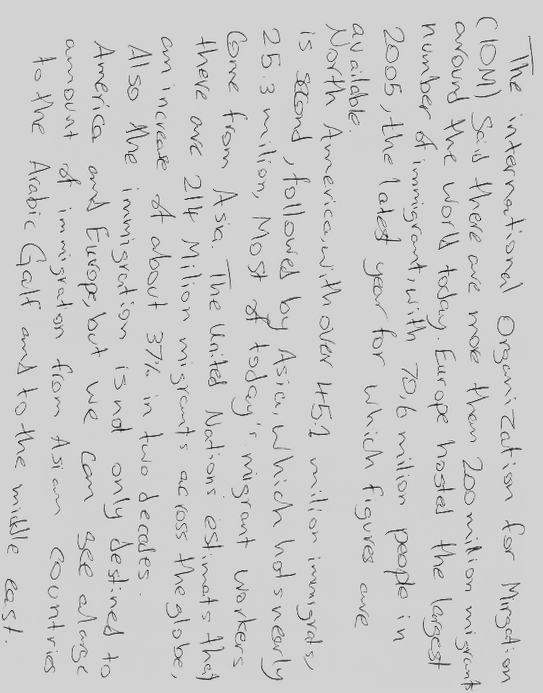 The international Organization for Mirgation
(IOM) Said there are more than 200 million migrants
around the world today. Europe hosted the largest
number of immigrant, with 70,6 million people in
2005, the latest year for which figures are
available.
North America, with over 45.1 million immigrats,
is second, followed by Asia, which hots nearly
25.3 million, Most of today's migrant workers
Come from Asia. The United Nations estimats that
there are 214 Milion migrants across the globe,
an increase of about 37% in two decades.
Also the immigration is not only destined to
America and Europe, but we can see a large
amount of immigration from Asian countries
to the Arabic Galf and to the middle east.